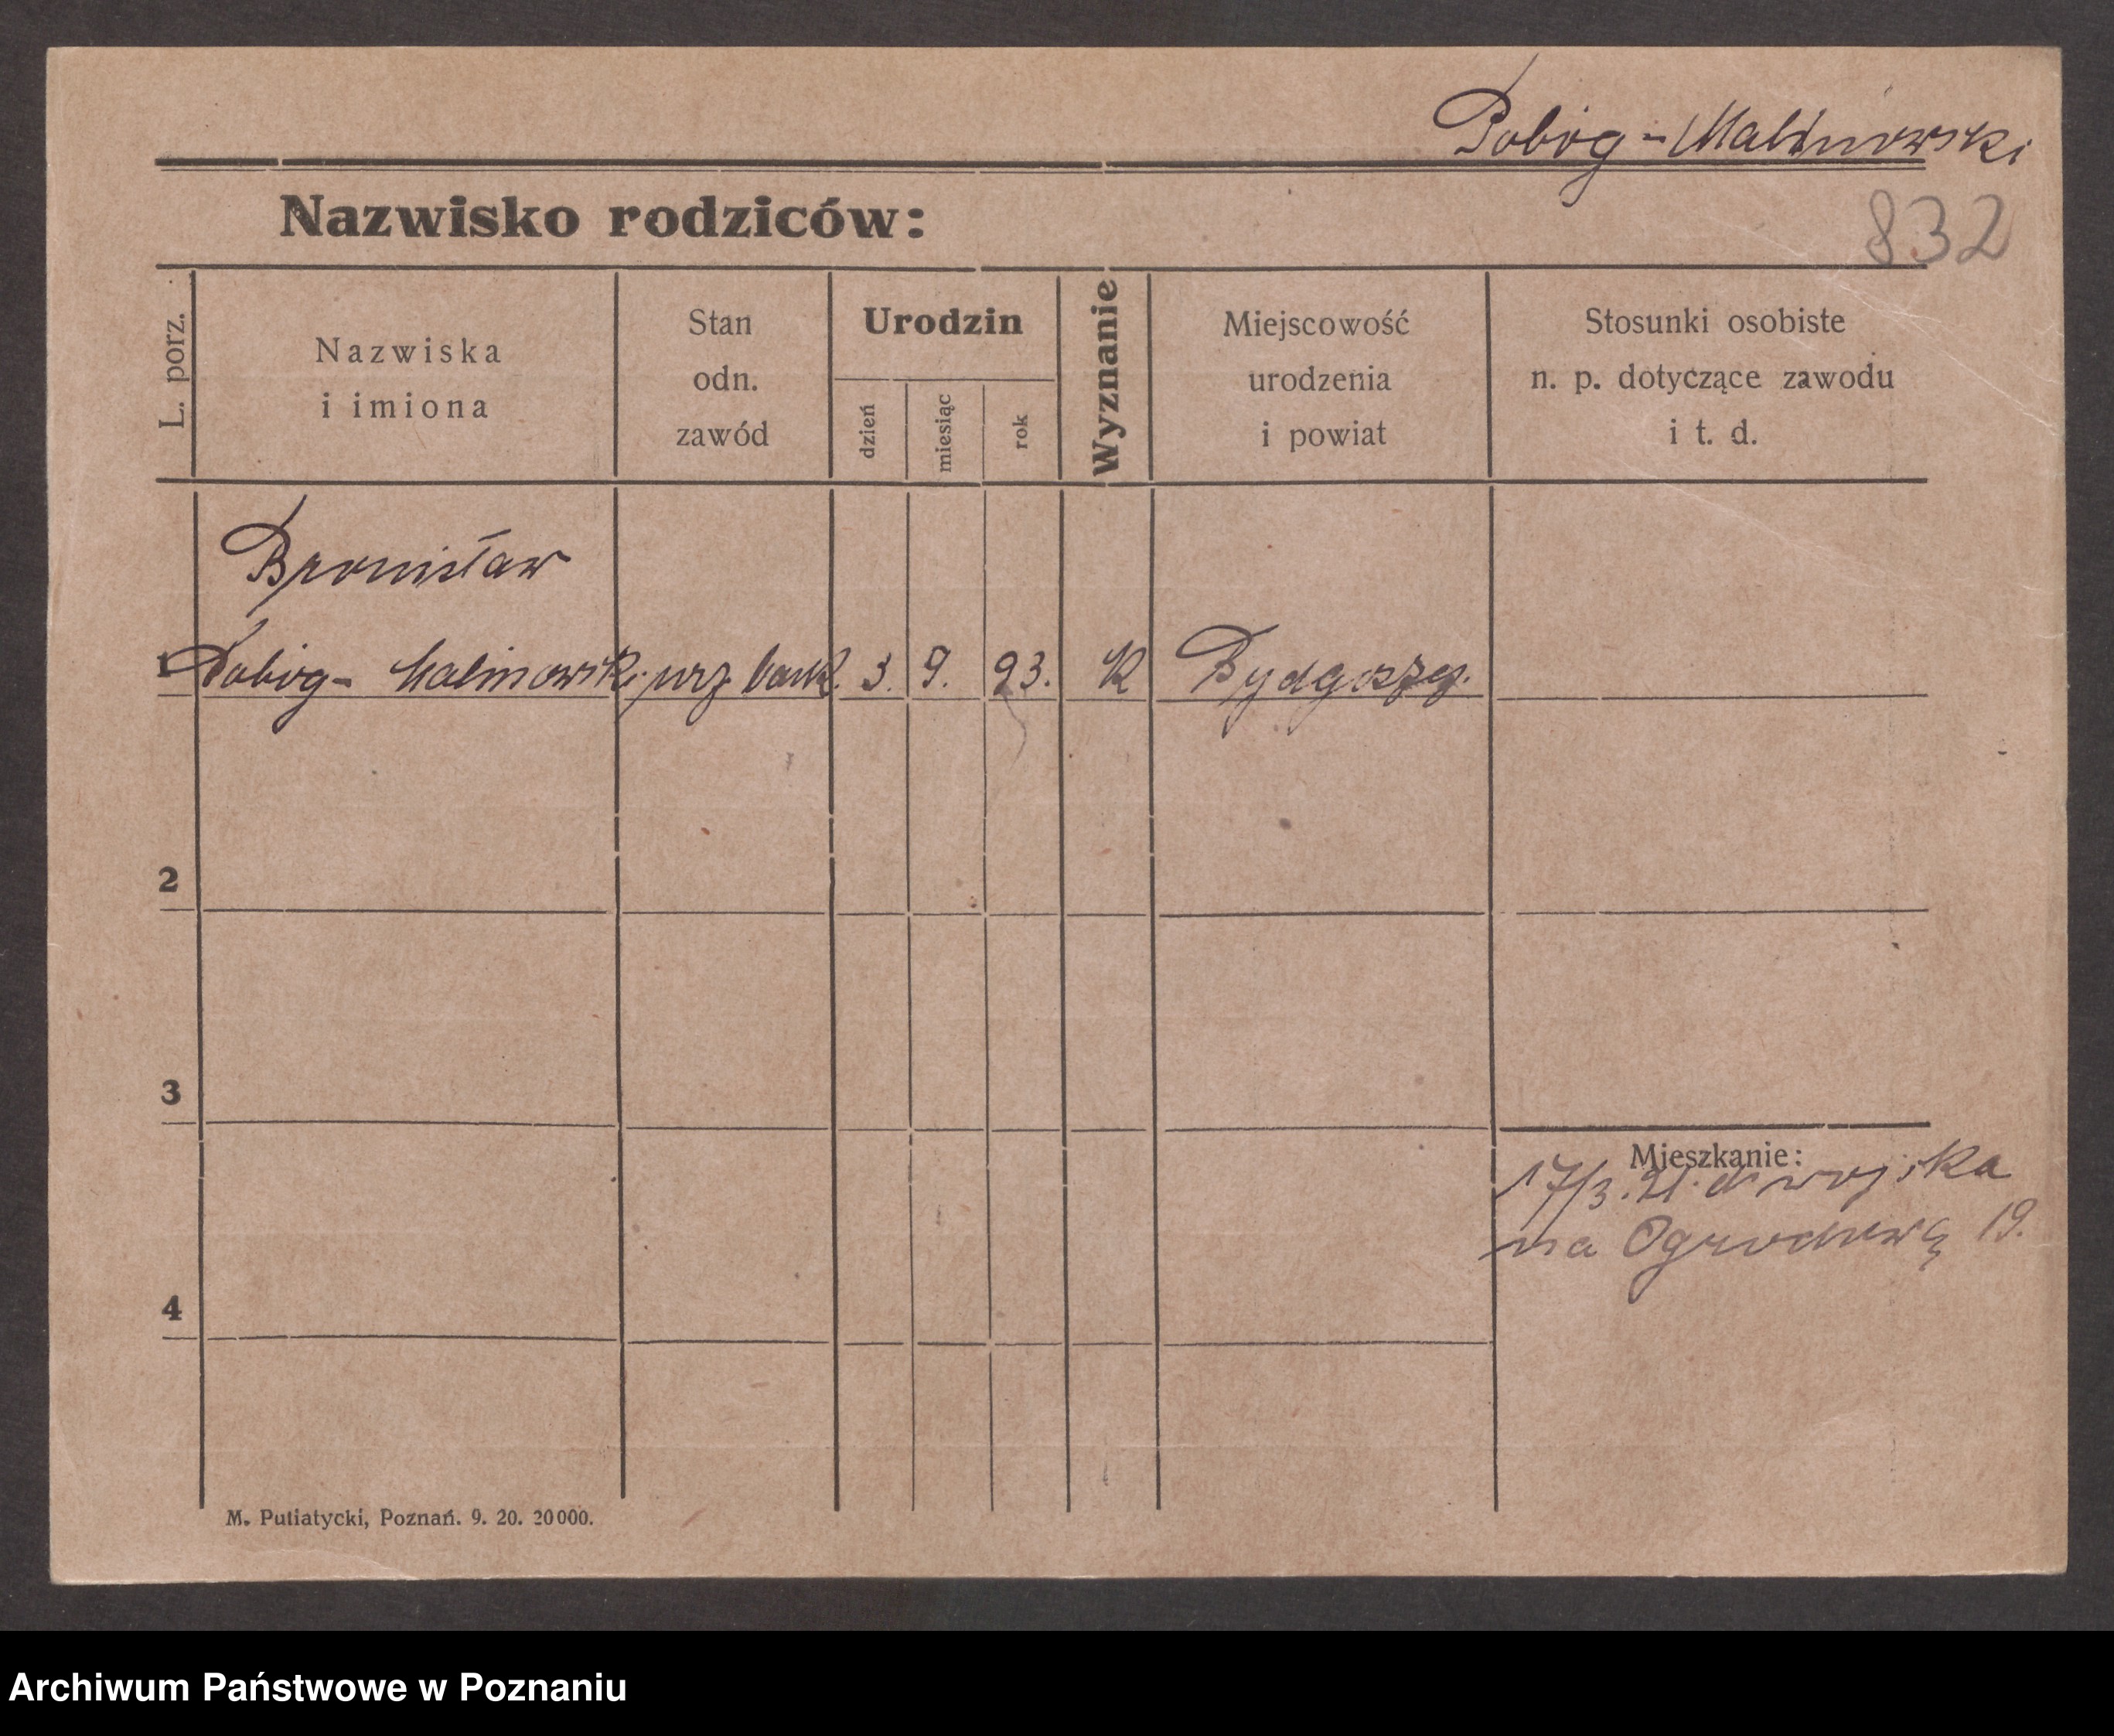 Pobóg-Malinowski
Nazwisko rodziców:
832
L. porz.
Nazwiska
i imiona
Stan
odn.
zawód
Urodzin
dzień
miesiąc
rok
Wyznanie
Miejscowość
urodzenia
i powiat
Stosunki osobiste
n. p. dotyczące zawodu
i t. d.
Bronisław
1 Pobóg- Malinowski urz bank. 3. 9. 93. K Bydgoszcz.
2
3
Mieszkanie:
17/3.21. do wojska
na Ogrodową 19.
4
M. Putiatycki, Poznań. 9. 20. 20000.
Archiwum Państwowe w Poznaniu